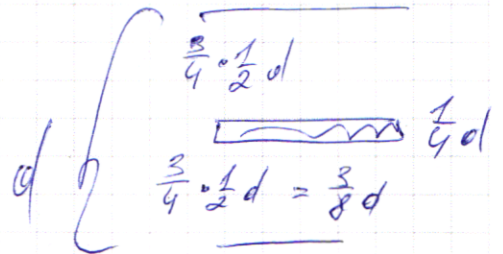 3/4 · 1/2 d
1/4 d
d
3/4 · 1/2 d = 3/8 d